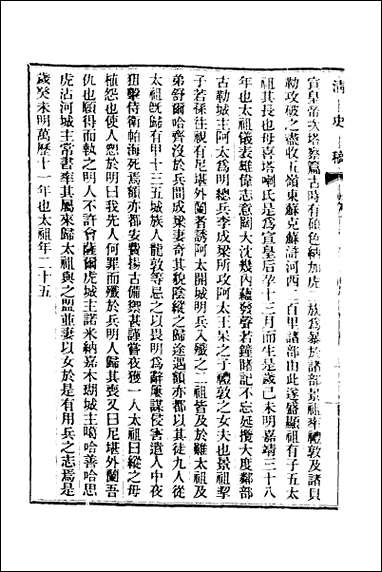 清史稿
宣皇帝次塔察篇古時有碩色納加虎 族為暴於諸部景祖率禮敦及諸貝
勒攻破之盡收五嶺東蘇克蘇滸河西 百里諸部由此遂盛顯祖有子五太
祖其長也母喜塔喇氏是為宣皇后孕十三月而生是歲己未明嘉靖三十八
年也太祖儀表雄偉志意闊大沈幾內蘊發聲若鐘睹記不忘延攬大度鄰部
古勒城主阿太為明總兵李成梁所攻阿太王杲之子禮敦之女夫也景祖挈
子若孫往視有尼堪外蘭者誘阿太開城明兵入殲之二祖皆及於難太祖及
弟舒爾哈齊沒於兵間成梁妻奇其貌陰縱之歸途遇額亦都以其徒九人從
太祖既歸有甲十三五城族人龍敦等忌之以畏明為辭屢謀侵害遣人中夜
狙擊侍衛帕海死焉額亦都安費揚古備禦甚謹嘗夜獲一人太祖曰縱之毋
植怨也使人愬於明曰我先人何罪而殲於兵明人歸其喪又曰尼堪外蘭吾
仇也願得而執之明人不許會薩爾虎城主諾米納嘉木瑚城主噶哈善哈思
虎沾河城主常書率其屬來歸太祖與之盟並妻以女於是有用兵之志焉是
歲癸未明萬曆十一年也太祖年二十五